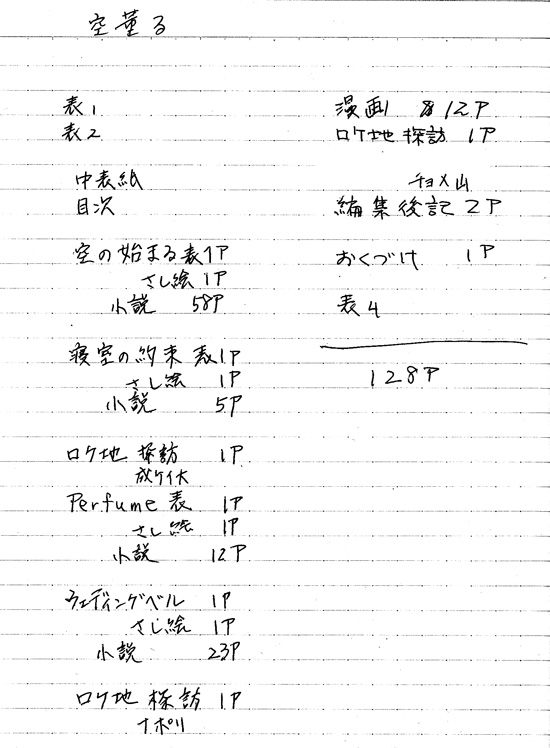 空薫る
表1
表2
中表紙
目次
空の始まる表1P
さし絵 1P
小説 58P
寝室の約束 表1P
さし絵 1P
小説 5P
ロケ地 探訪 1P
Perfume 表 1P
さし絵 1P
小説 12P
ウェディングベル 1P
さし絵 1P
小説 23P
ロケ地 探訪 1P
ナポリ
漫画 12P
ロケ地 探訪 1P
チョメ山
編集後記 2P
おくづけ 1P
表4
128P